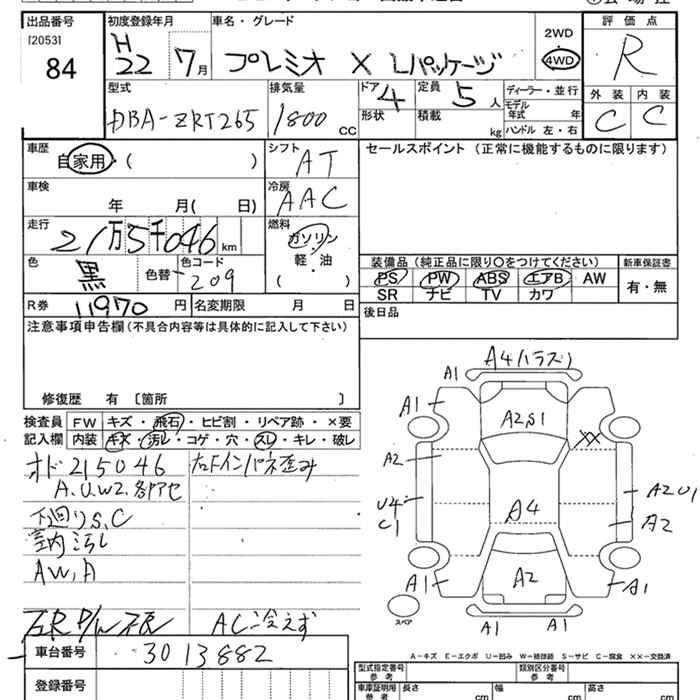 出品番号 初度登録年月 車名・グレード 2WD 4WD 評価点
[2053] 84 H22 7月 プレミオ X Lパッケージ R
型式 排気量 ドア 4 定員 5人 ディーラー・並行 外装 内装
DBA-ZRT265 1800 CC 形状 積載 kg モデル年式 年 C C
ハンドル 左・右
車歴 自家用・( ) シフト AT セールスポイント (正常に機能するものに限ります)
車検 年 月( 日) 冷房 AAC
走行 21万5千046 km 燃料 ガソリン 軽・油 ( )
装備品 (純正品に限り○をつけてください) 新車保証書
色 黒 色替 色コード 209 PS PW ABS エアB AW 有・無
SR ナビ TV カワ
R券 11970 円 名変期限 月 日 後日品
注意事項申告欄 (不具合内容等は具体的に記入して下さい)
修復歴 有 〔箇所 〕
検査員 FW キズ・飛石・ヒビ割・リペア跡・×要
記入欄 内装 キズ・汚レ・コゲ・穴・スレ・キレ・破レ
オド 215046
A.U.W2.各所アセ
下廻りS.C
室内汚レ
AW.A
ACー冷えず
A4(ハラズ)
A1
A1
A2S1
XX
A2
U4
C1
A4
A2U1
A2
A1
A2
A1
スペア
A1 A1
A-キズ E-エクボ U-凹み W-補修跡 S-サビ C-腐食 XX-交換済
車台番号 3013882
登録番号
型式指定番号 参考 類別区分番号 参考
車庫証明用 参考 長さ cm 幅 cm 高さ cm